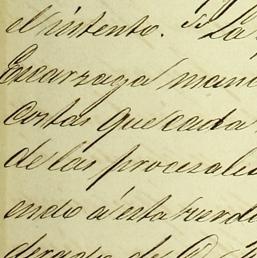 el intento. La
Escarzaga man
costas que cada
de las procesale
endo á esta
de